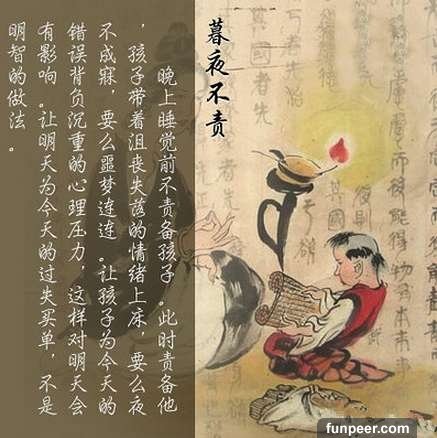 暮夜不责
晚上睡觉前不责备孩子。此时责备他
，孩子带着沮丧失落的情绪上床，要么夜
不成寐，要么噩梦连连。让孩子为今天的
错误背负沉重的心理压力，这样对明天会
有影响。让明天为今天的过失买单，不是
明智的做法。
funpeer.com